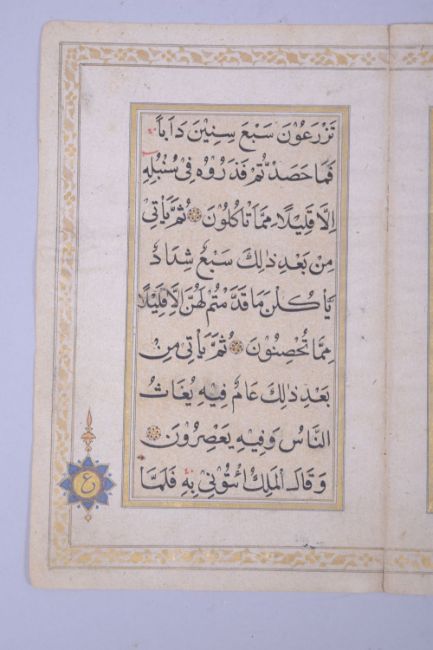 تَزْرَعُوْنَ سَبْعَ سِنِيْنَ دَاَبًا
فَمَا حَصَدْتُّمْ فَذَرُوْهُ فِىْ سُنْۢبُلِهٖ
اِلَّا قَلِيْلًا مِمَّا تَاْكُلُوْنَ ثُمَّ يَاْتِىْ
مِنْ بَعْدِ ذٰلِكَ سَبْعٌ شِدَادٌ
يَاْكُلْنَ مَا قَدَّمْتُمْ لَهُنَّ اِلَّا قَلِيْلًا
مِمَّا تُحْصِنُوْنَ ثُمَّ يَاْتِىْ مِنْ
بَعْدِ ذٰلِكَ عَامٌ فِيْهِ يُغَاثُ
النَّاسُ وَفِيْهِ يَعْصِرُوْنَ
وَقَالَ الْمَلِكُ ائْتُوْنِىْ بِهٖ فَلَمَّا
ع